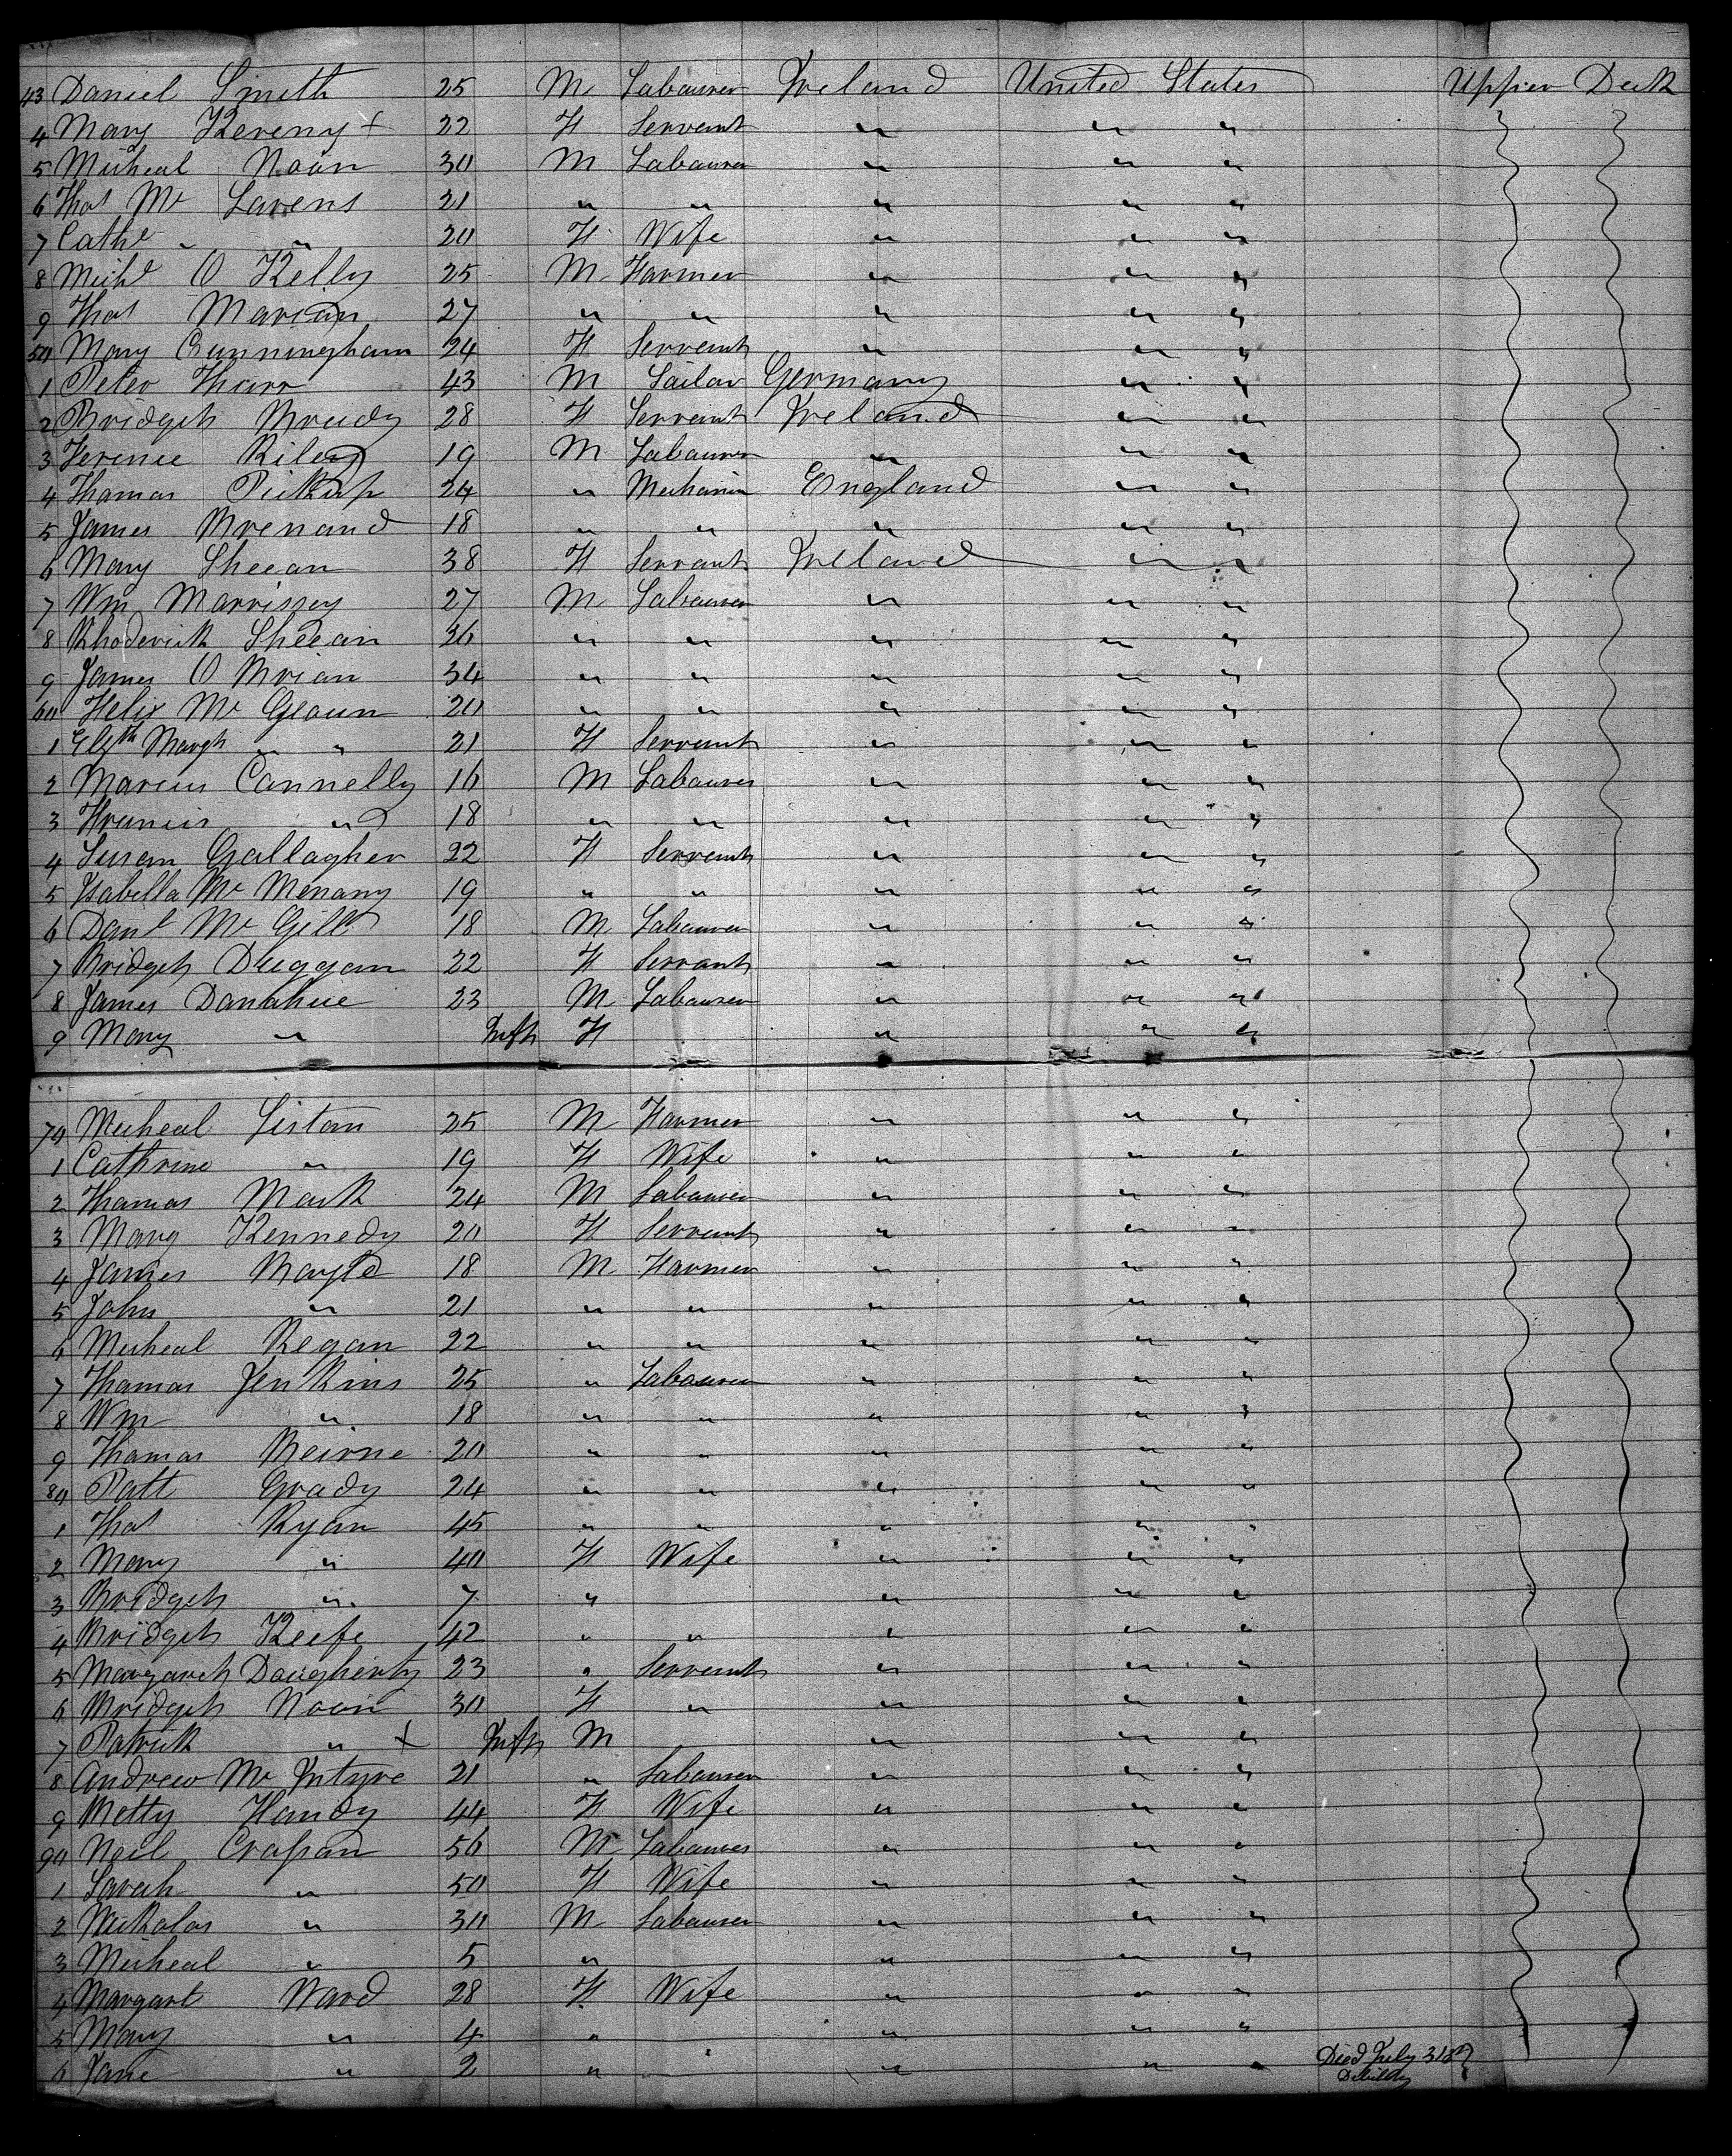 43 Daniel Smith 25 M Labourer Ireland United States Upper Deck
4 Mary Kereny + 22 F Servant " " "
5 Micheal Noon 30 M Labourer " " "
6 Thos Mc Larens 21 " " " " "
7 Cathe " " 20 F Wife " " "
8 Michl O Kelly 25 M Farmer " " "
9 Thos Marian 27 " " " " "
50 Mary Cunningham 24 F Servant " " "
1 Peter Tharr 43 M Sailor Germany " "
2 Bridget Brudy 28 F Servant Ireland " "
3 Terence Riley 19 M Labourer " " "
4 Thomas Pickup 24 " Mechanic England " "
5 James Brenand 18 " " " " "
6 Mary Sheean 38 F Servant Ireland " "
7 Wm Morrissey 27 M Labourer " " "
8 Rhoderick Sheean 36 " " " " "
9 James O Brian 34 " " " " "
60 Felix Mc Geoun 20 " " " " "
1 Elzth Margh " " 21 F Servant " " "
2 Marcus Connelly 16 M Labourer " " "
3 Francis " 18 " " " " "
4 Susan Gallagher 22 F Servant " " "
5 Isabella Mc Menany 19 " " " " "
6 Danl Mc Gill 18 M Labourer " " "
7 Bridget Duggan 22 F Servant " " "
8 James Donahue 23 M Labourer " " "
9 Mary " Inft F " " "
70 Micheal Liston 25 M Farmer " " "
1 Cathrine " 19 F Wife " " "
2 Thomas Mark 24 M Labourer " " "
3 Mary Kennedy 20 F Servant " " "
4 James Boyld 18 M Farmer " " "
5 John " 21 " " " " "
6 Micheal Regan 22 " " " " "
7 Thomas Jenkins 25 " Labourer " " "
8 Wm " 18 " " " " "
9 Thomas Beirne 20 " " " " "
80 Patt Grady 24 " " " " "
1 Thos Ryan 45 " " " " "
2 Mary " 40 F Wife " " "
3 Bridget " 7 " " " "
4 Bridget Keefe 42 " " " " "
5 Margaret Daugherty 23 " Servant " " "
6 Bridget Noon 30 F " " " "
7 Patrick " + Inft M " " "
8 Andrew Mc Intyre 21 " Labourer " " "
9 Betty Handy 44 F Wife " " "
90 Neil Crossan 56 M Labourer " " "
1 Sarah " 50 F Wife " " "
2 Nickolas " 30 M Labourer " " "
3 Micheal " 5 " " " "
4 Margart Ward 28 F Wife " " "
5 Mary " 4 " " " "
6 Jane " 2 " " " " Died July 31st
Debility